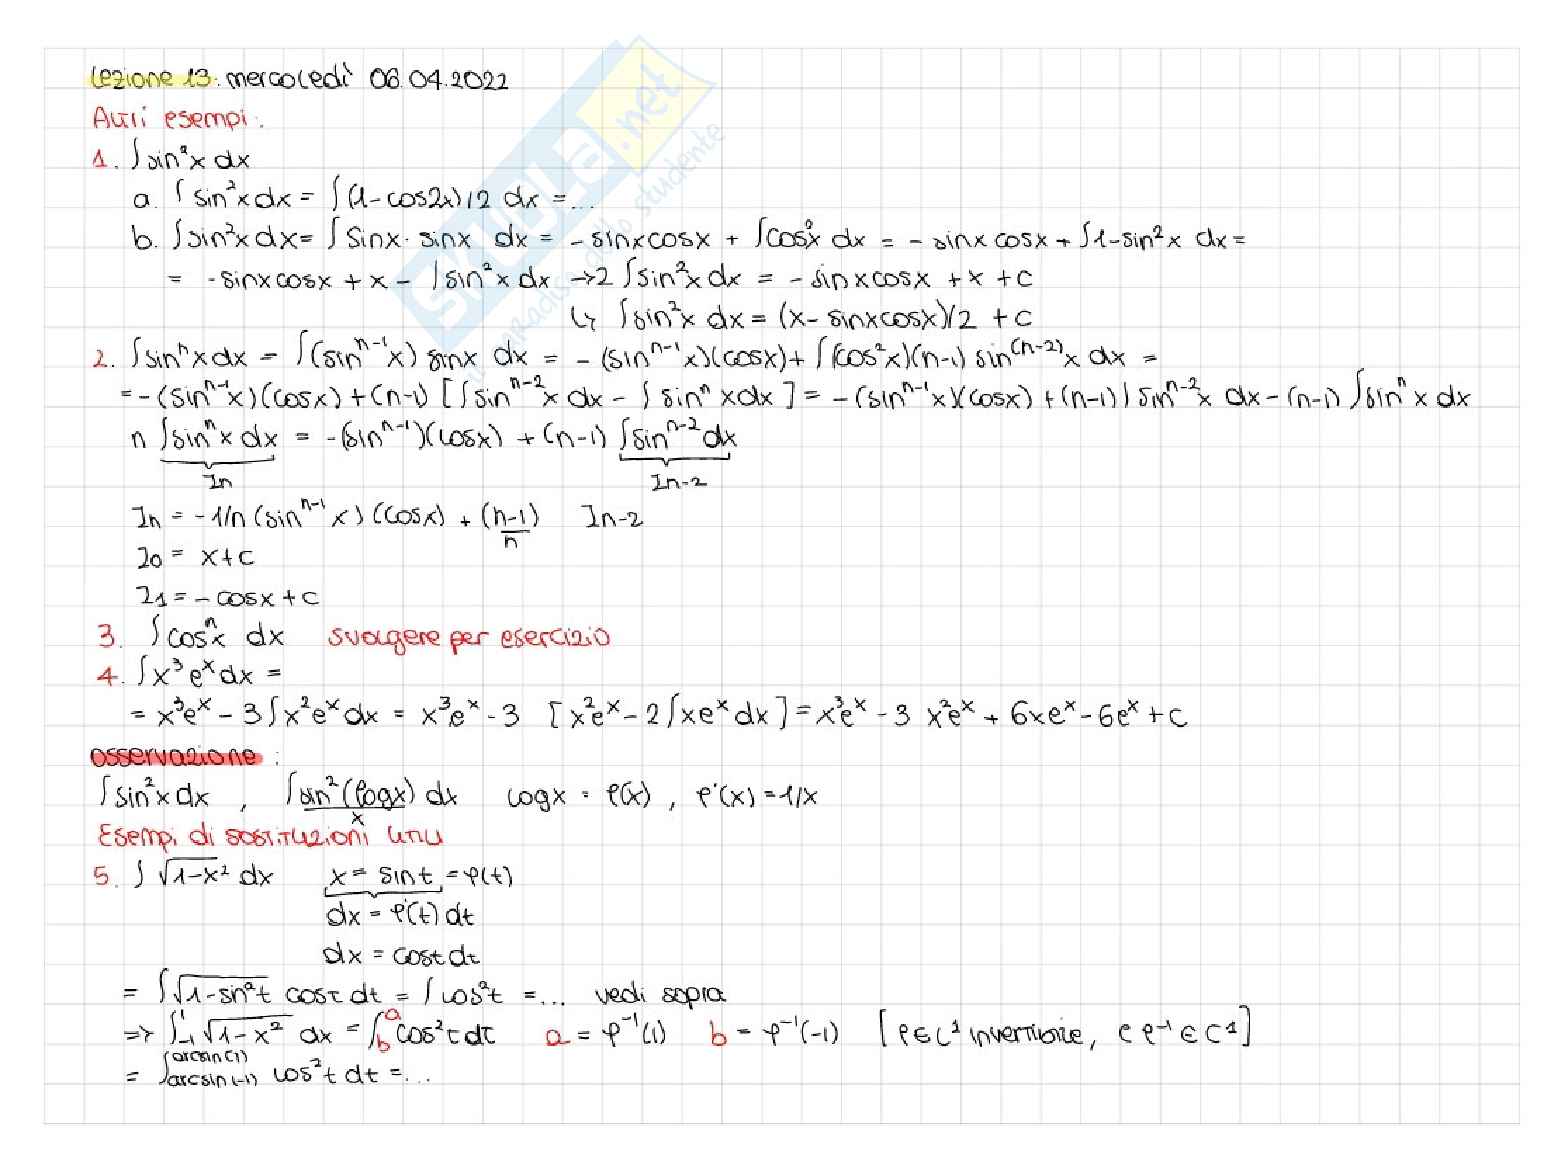 Lezione 13: mercoledì 06.04.2022
Altri esempi:
1. ∫sin²x dx
a. ∫ sin²x dx = ∫(1-cos2x)/2 dx = ...
b. ∫sin²x dx = ∫ sinx · sinx dx = - sinxcosx + ∫cos²x dx = - sinx cosx + ∫1-sin²x dx =
= -sinxcosx + x - ∫sin²x dx → 2 ∫sin²x dx = - sinxcosx + x + c
↳ ∫sin²x dx = (x- sinxcosx)/2 + c
2. ∫sinⁿx dx = ∫(sinⁿ⁻¹x) sinx dx = - (sinⁿ⁻¹x)(cosx) + ∫(cos²x)(n-1) sin⁽ⁿ⁻²⁾x dx =
= -(sinⁿ⁻¹x)(cosx) + (n-1) [∫sinⁿ⁻²x dx - ∫ sinⁿ x dx ] = -(sinⁿ⁻¹x)(cosx) + (n-1)∫sinⁿ⁻²x dx - (n-1) ∫sinⁿ x dx
n ∫sinⁿx dx = -(sinⁿ⁻¹)(cosx) + (n-1) ∫sinⁿ⁻² dx
In In-2
In = -1/n (sinⁿ⁻¹x) (cosx) + (n-1)/n In-2
I0 = x+c
I1 = - cosx + c
3. ∫cosⁿx dx svolgere per esercizio
4. ∫x³eˣdx =
= x³eˣ - 3∫x²eˣdx = x³eˣ - 3 [x²eˣ - 2∫xeˣdx] = x³eˣ - 3 x²eˣ + 6xeˣ - 6eˣ + c
osservazione:
∫sin²x dx , ∫sin²(logx)/x dx logx = φ(x) , φ'(x) = 1/x
Esempi di sostituzioni utili
5. ∫ √1-x² dx x = sint = φ(t)
dx = φ'(t) dt
dx = costdt
= ∫√1-sin²t cost dt = ∫cos²t = ... vedi sopra
=> ∫₋₁¹ √1-x² dx = ∫_b^a cos²t dt a = φ⁻¹(1) b = φ⁻¹(-1) [φ∈C¹ invertibile, e φ⁻¹ ∈ C¹]
= ∫_arcsin(-1)^arcsin(1) cos²t dt = ...
SKUOLA.net